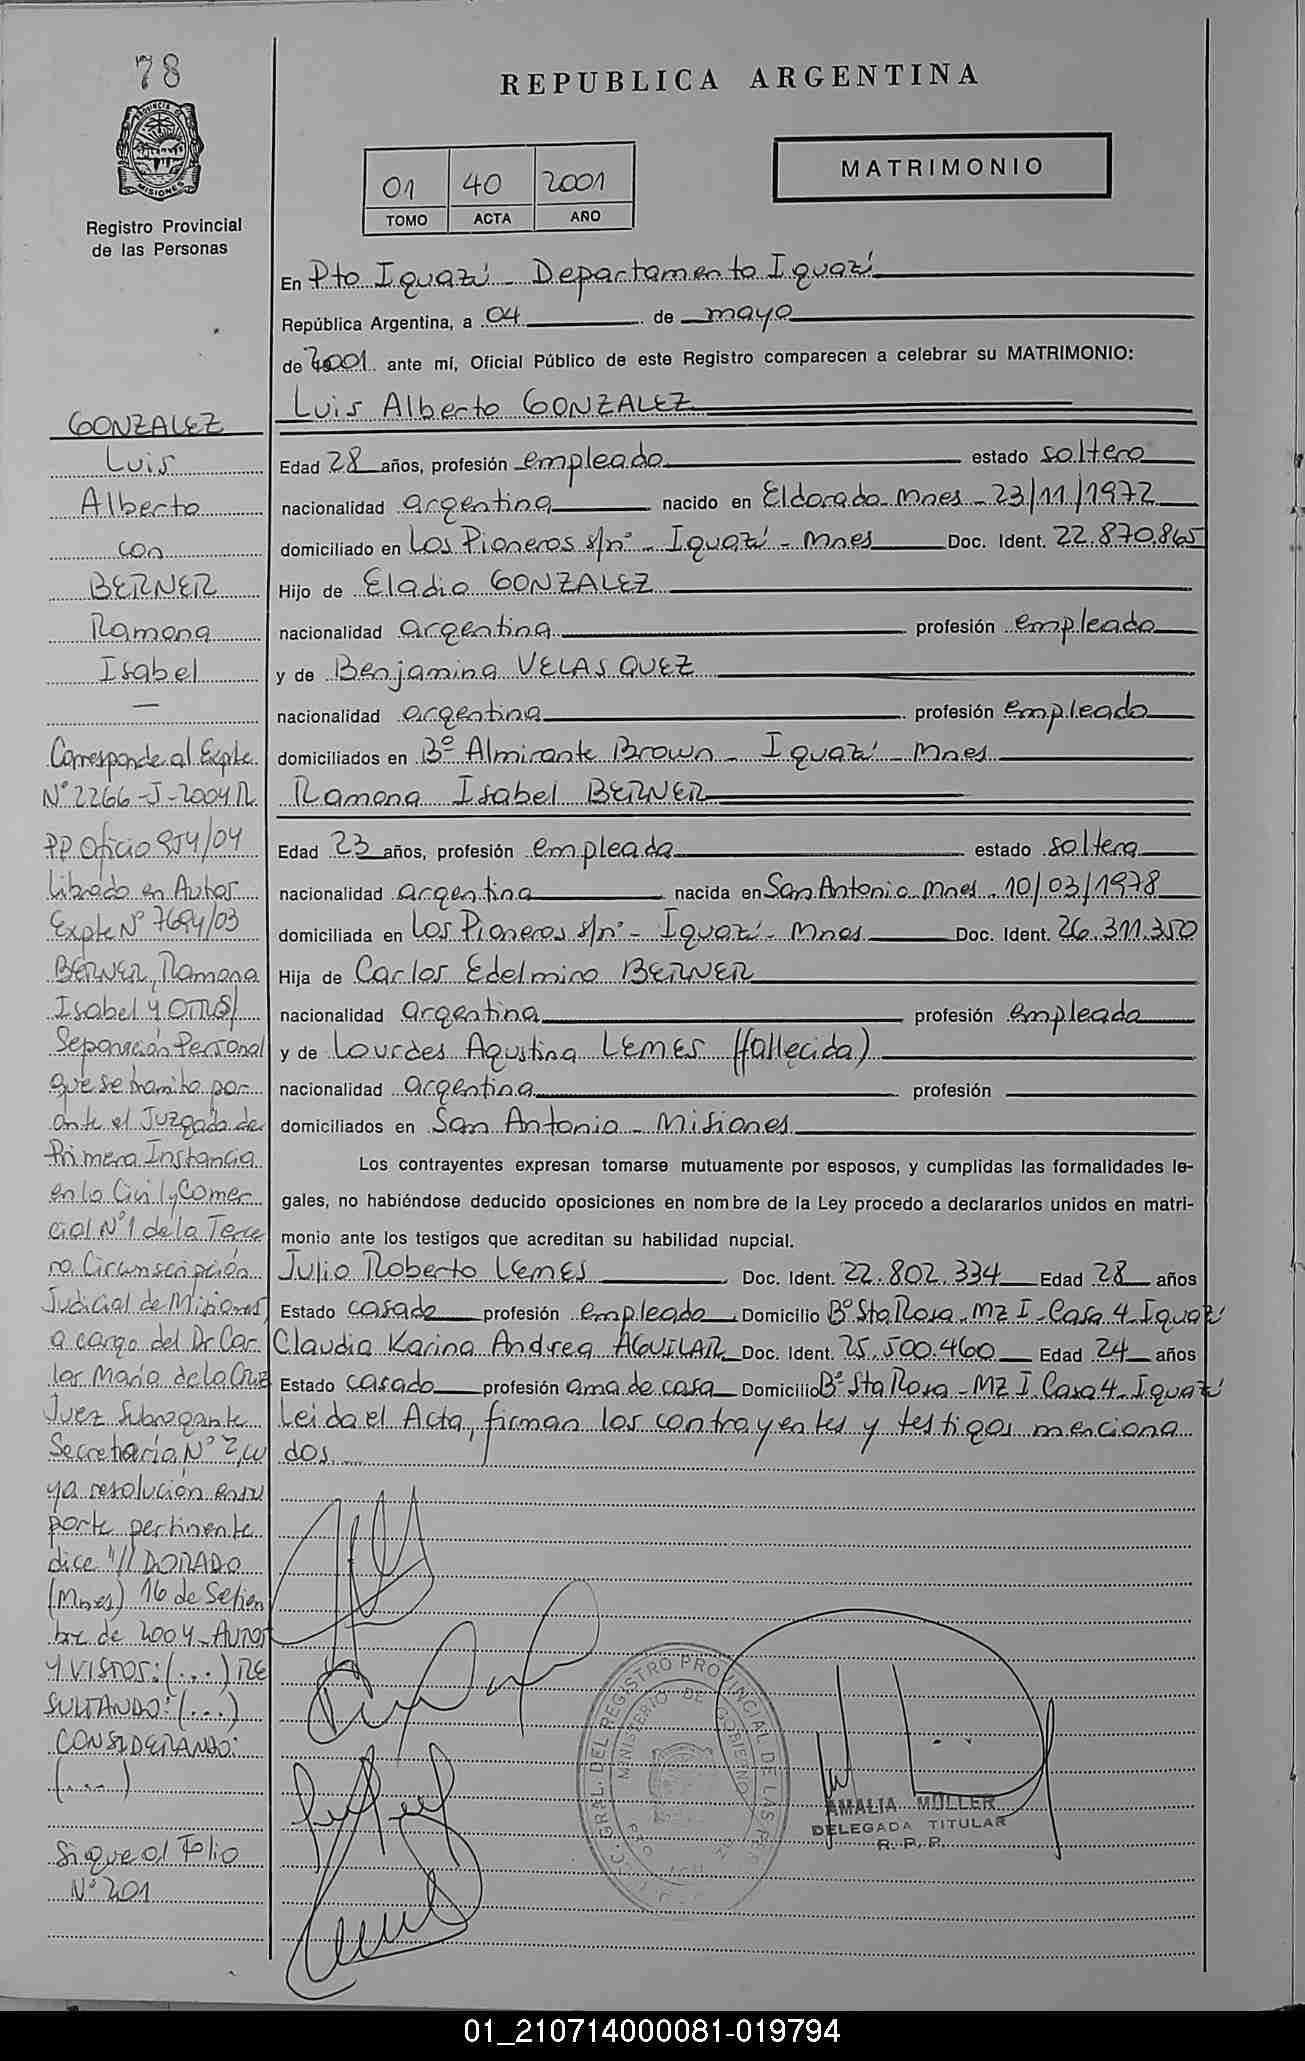 78
PROVINCIA DE
MISIONES
Registro Provincial
de las Personas
REPUBLICA ARGENTINA
01 40 2001
TOMO ACTA AÑO
MATRIMONIO
En Pto Iguazú - Departamento Iguazú
República Argentina, a 04 de mayo
de 2001 ante mí, Oficial Público de este Registro comparecen a celebrar su MATRIMONIO:
Luis Alberto GONZALEZ
Edad 28 años, profesión empleado estado soltero
nacionalidad argentina nacido en Eldorado Mnes - 23/11/1972
domiciliado en Los Pioneros s/nº - Iguazú - Mnes Doc. Ident. 22.870.865
Hijo de Eladio GONZALEZ
nacionalidad argentina profesión empleado
y de Benjamina VELASQUEZ
nacionalidad argentina profesión empleado
domiciliados en Bº Almirante Brown - Iguazú - Mnes
Ramona Isabel BERNER
Edad 23 años, profesión empleada estado soltera
nacionalidad argentina nacida en San Antonio Mnes - 10/03/1978
domiciliada en Los Pioneros s/nº - Iguazú - Mnes Doc. Ident. 26.311.350
Hija de Carlos Edelmiro BERNER
nacionalidad argentina profesión empleada
y de Lourdes Agustina LEMES (fallecida)
nacionalidad argentina profesión
domiciliados en San Antonio - Misiones
Los contrayentes expresan tomarse mutuamente por esposos, y cumplidas las formalidades le-
gales, no habiéndose deducido oposiciones en nombre de la Ley procedo a declararlos unidos en matri-
monio ante los testigos que acreditan su habilidad nupcial.
Julio Roberto LEMES Doc. Ident. 22.802.334 Edad 28 años
Estado casado profesión empleado Domicilio Bº Sta Rosa - MZ I - Casa 4 - Iguazú
Claudia Karina Andrea AGUILAR Doc. Ident. 25.500.460 Edad 24 años
Estado casado profesión ama de casa Domicilio Bº Sta Rosa - MZ I Casa 4 - Iguazú
Leida el Acta, firman los contrayentes y testigos menciona
dos
GONZALEZ
Luis
Alberto
con
BERNER
Ramona
Isabel
—
Corresponde al Expte.
Nº 2266-J-2004 R.
PP Oficio 954/04
Librado en Autos
Expte Nº 7694/03
BERNER, Ramona
Isabel y OTROS/
Separación Personal
que se tramita por
ante el Juzgado de
Primera Instancia
en lo Civil y Comer
cial Nº 1 de la Terce
ra Circunscripción
Judicial de Misiones,
a cargo del Dr Car
los María de la Cruz
Juez Subrogante
Secretaría Nº 2, cu
ya resolución en su
parte pertinente
dice "// DORADO
(Mnes) 16 de Setiem
bre de 2004 - AUTOS
Y VISTOS: (...) RE
SULTANDO: (...)
CONSIDERANDO:
(...)
Sigue al Folio
Nº 201
GRAL. DEL REGISTRO PROVINCIAL DE LAS PER
MINISTERIO DE GOBIERNO
AMALIA MULLER
DELEGADA TITULAR
R. P. P.
01_210714000081-019794